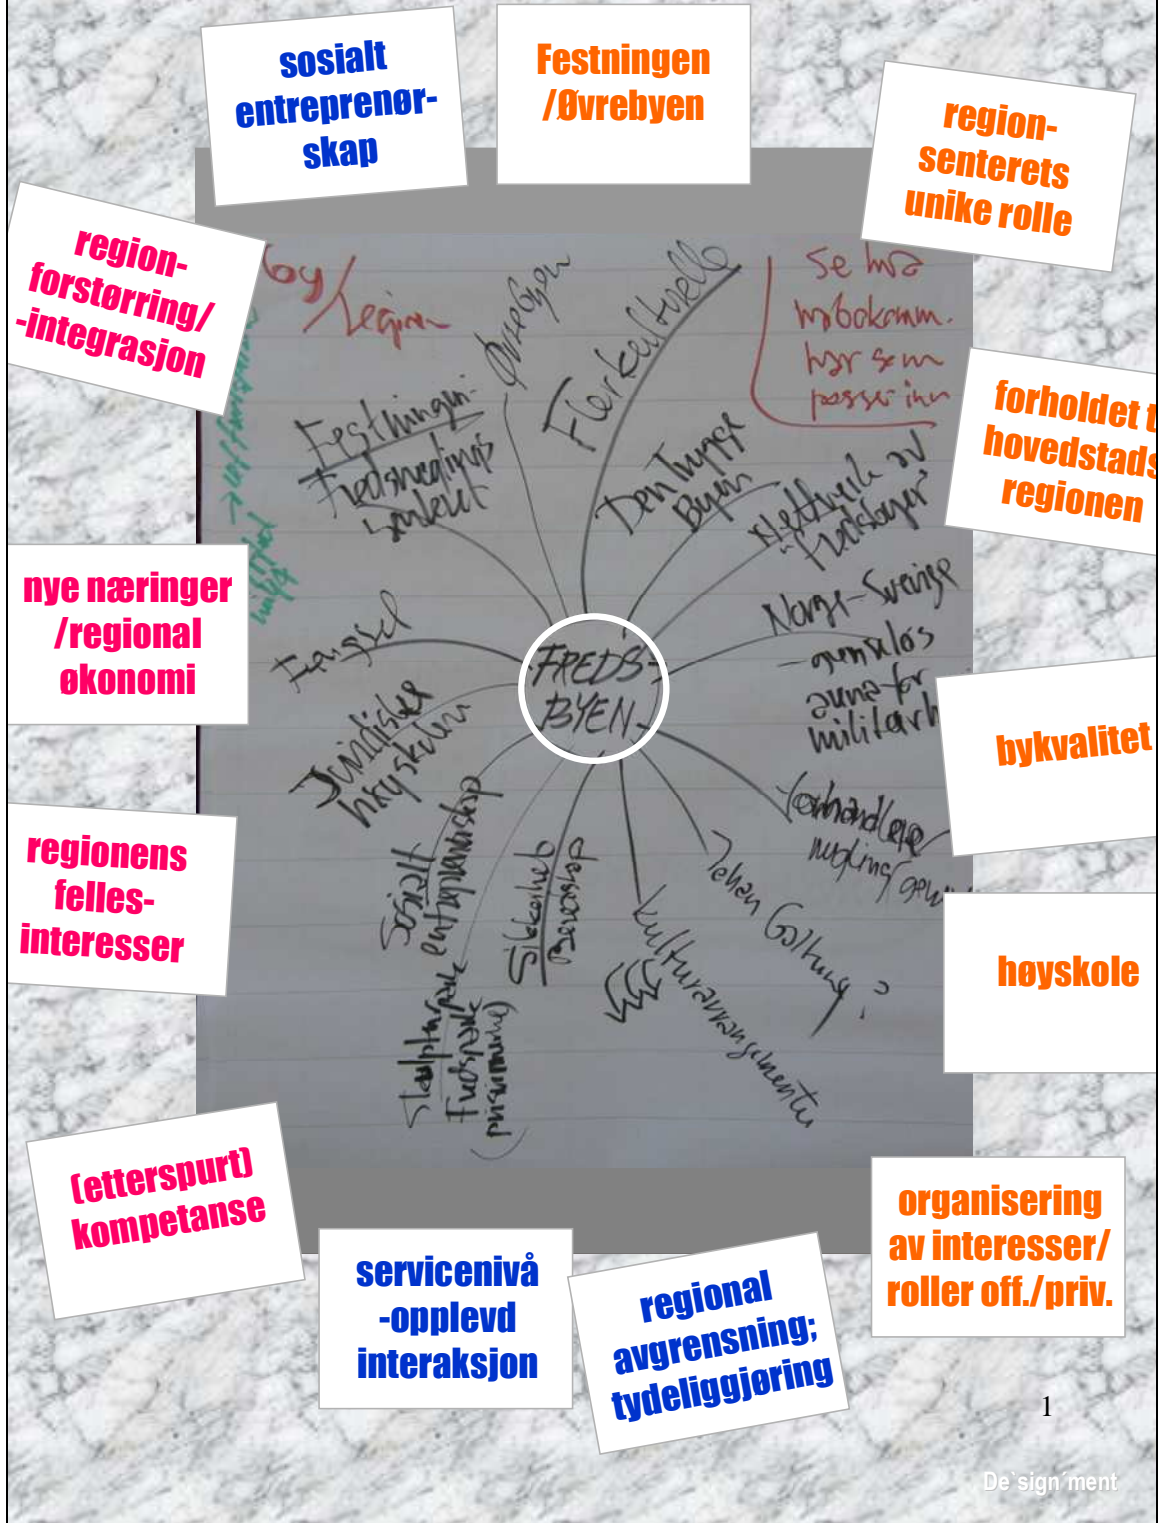 sosialt
entreprenør-
skap
Festningen
/Øvrebyen
region-
senterets
unike rolle
region-
forstørring/
-integrasjon
forholdet t
hovedstads
regionen
nye næringer
/regional
økonomi
bykvalitet
regionens
felles-
interesser
høyskole
(etterspurt)
kompetanse
servicenivå
-opplevd
interaksjon
regional
avgrensning;
tydeliggjøring
organisering
av interesser/
roller off./priv.
by/
region
Øvrebyen
Flerkulturelle
se hva
nabokomm.
har som
passer inn
Festningen-
Fredsmeglings
senteret
Den Trygge
Byen
Nettverk av
fredsbyer
Norge-Sverige
- grenseløs
arena for
militærh
FREDS-
BYEN
Fengsel
Juridiske
høyskolen
Sosialt
entreprenørskap
Sikkerhet
Beredskap
Skulpturpark
Fredspark
Kulturarrangementer
Johan Galtung?
Forhandlere/
megling/
1
De`sign´ment